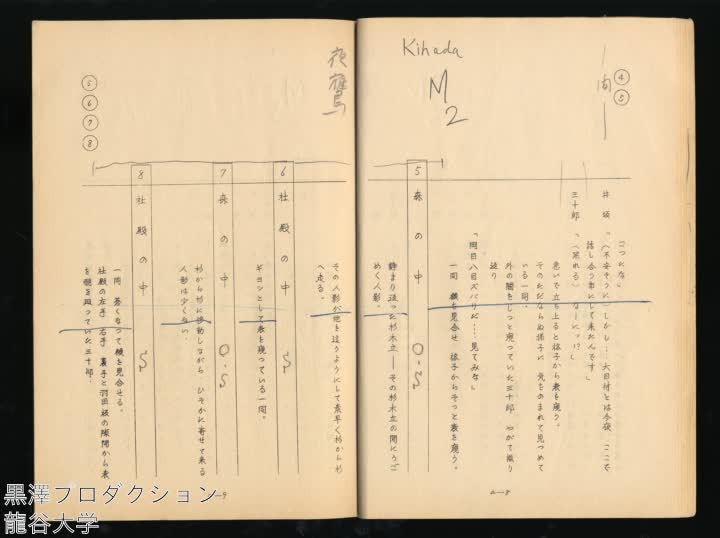 Kihada
M
2
④
⑤
つたな」
井坂「(不安そうに)しかし……大目付とは今夜 ここで
話し合う事にして来たんです」
三十郎「(呆れる) なーにッ!?」
思いで立ち上ると格子から表を窺う。
そのただならぬ様子に 気をのまれて見つめて
いる一同。
外の闇をじっと窺っていた三十郎 やがて振り
返り
「岡目八目ズバリだ……見てみな」
一同 顔を見合せ 格子からそっと表を窺う。
5 森の中 O.S
静まり返った杉木立──その杉木立の間にうご
めく人影。
2-8
夜鷹
⑤
⑥
⑦
⑧
その人影が地を這うようにして素早く杉から杉
へ走る。
6 社殿の中 S
ギョッとして表を窺っている一同。
7 森の中 O.S
杉から杉に移動しながら ひそかに寄せて来る
人影は少くない。
8 社殿の中 S
一同 蒼くなって顔を見合せる。
社殿の左手 右手 裏手と羽目板の隙間から表
を覗き廻っていた三十郎、
-9
黒澤プロダクション
龍谷大学